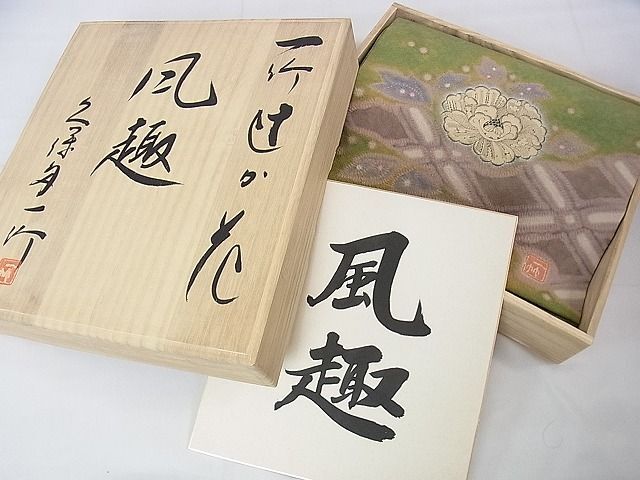 一竹辻が花
風趣
久保田一竹
風趣